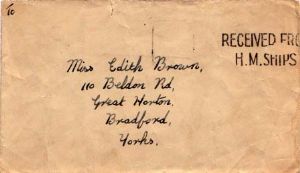 To
RECEIVED FRO
H.M.SHIPS
Miss Edith Brown,
110 Beldon Rd,
Great Horton,
Bradford,
Yorks.